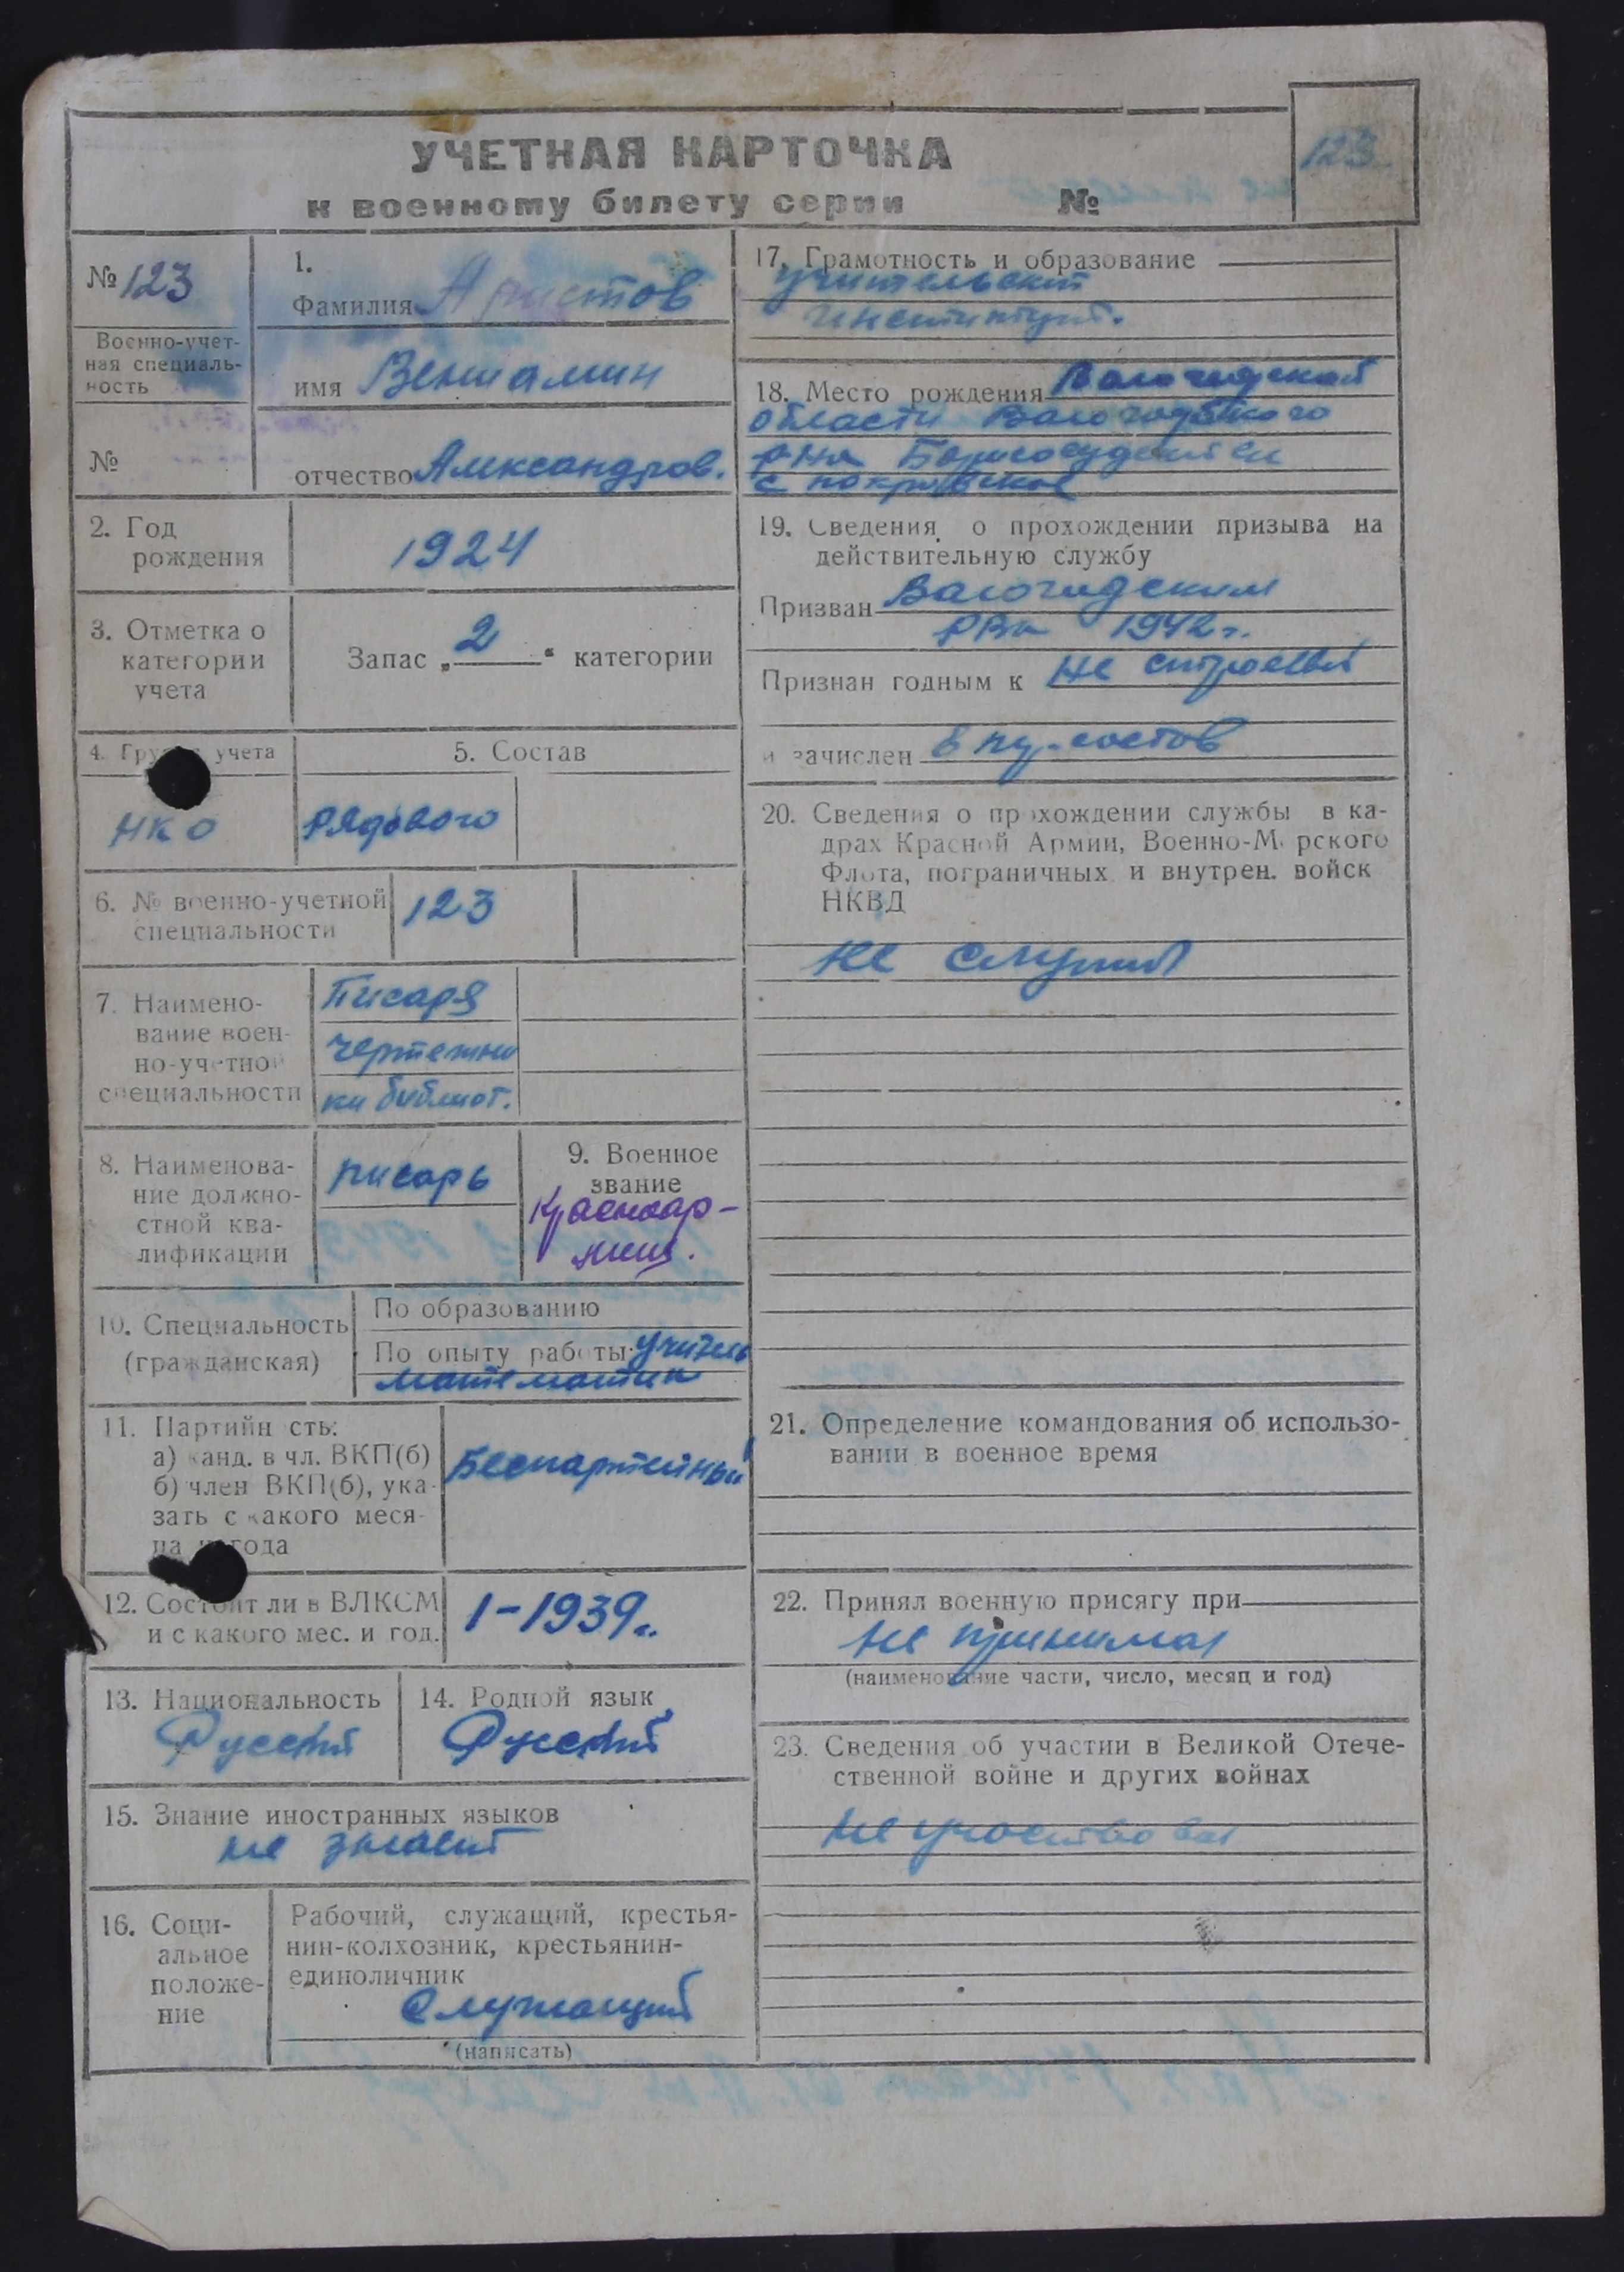 УЧЕТНАЯ КАРТОЧКА
к военному билету серии №
123
№ 123
Военно-учет-
ная специаль-
ность
№
1.
Фамилия Аристов
имя Вениамин
отчество Александров.
2. Год
рождения
1924
3. Отметка о
категории
учета
Запас „2“ категории
4. Группа учета
НКО
5. Состав
Рядового
6. № военно-учетной
специальности
123
7. Наимено-
вание воен-
но-учетной
специальности
Писаря
чертежни
ки библиот.
8. Наименова-
ние должно-
стной ква-
лификации
писарь
9. Военное
звание
Красноар-
меец.
10. Специальность
(гражданская)
По образованию
По опыту работы учитель
математик
11. Партийность:
а) канд. в чл. ВКП(б)
б) член ВКП(б), ука-
зать с какого меся-
ца и года
Беспартейный
12. Состоит ли в ВЛКСМ
и с какого мес. и год.
1-1939г.
13. Национальность
Русский
14. Родной язык
Русский
15. Знание иностранных языков
не знает
16. Соци-
альное
положе-
ние
Рабочий, служащий, крестья-
нин-колхозник, крестьянин-
единоличник
Служащий
(написать)
17. Грамотность и образование
учительский
институт.
18. Место рождения Вологодской
области Вологодского
р-на
с Покровское
19. Сведения о прохождении призыва на
действительную службу
Призван Вологодским
РВк 1942г.
Признан годным к не строевой
и зачислен в
20. Сведения о прохождении службы в ка-
драх Красной Армии, Военно-Морского
Флота, пограничных и внутрен. войск
НКВД
не служил
21. Определение командования об использо-
вании в военное время
22. Принял военную присягу при
не принимал
(наименование части, число, месяц и год)
23. Сведения об участии в Великой Отече-
ственной войне и других войнах
не участвовал